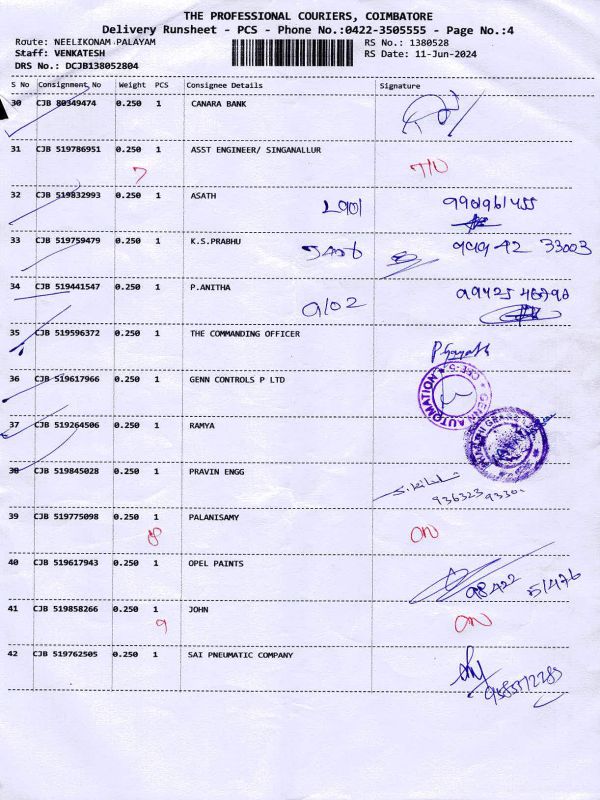 THE PROFESSIONAL COURIERS, COIMBATORE
Delivery Runsheet - PCS - Phone No.:0422-3505555 - Page No.:4
Route: NEELIKONAM PALAYAM RS No.: 1380528
Staff: VENKATESH RS Date: 11-Jun-2024
DRS No.: DCJB138052804
S No Consignment No Weight PCS Consignee Details Signature
30 CJB 80349474 0.250 1 CANARA BANK
31 CJB 519786951 0.250 1 ASST ENGINEER/ SINGANALLUR
7
32 CJB 519832993 0.250 1 ASATH
33 CJB 519759479 0.250 1 K.S.PRABHU
34 CJB 519441547 0.250 1 P.ANITHA
35 CJB 519596372 0.250 1 THE COMMANDING OFFICER
36 CJB 519617966 0.250 1 GENN CONTROLS P LTD
GENN AUTOMATION
37 CJB 519264506 0.250 1 RAMYA
38 CJB 519845028 0.250 1 PRAVIN ENGG
39 CJB 519775098 0.250 1 PALANISAMY
8
40 CJB 519617943 0.250 1 OPEL PAINTS
98422 51476
41 CJB 519858266 0.250 1 JOHN
9
42 CJB 519762505 0.250 1 SAI PNEUMATIC COMPANY